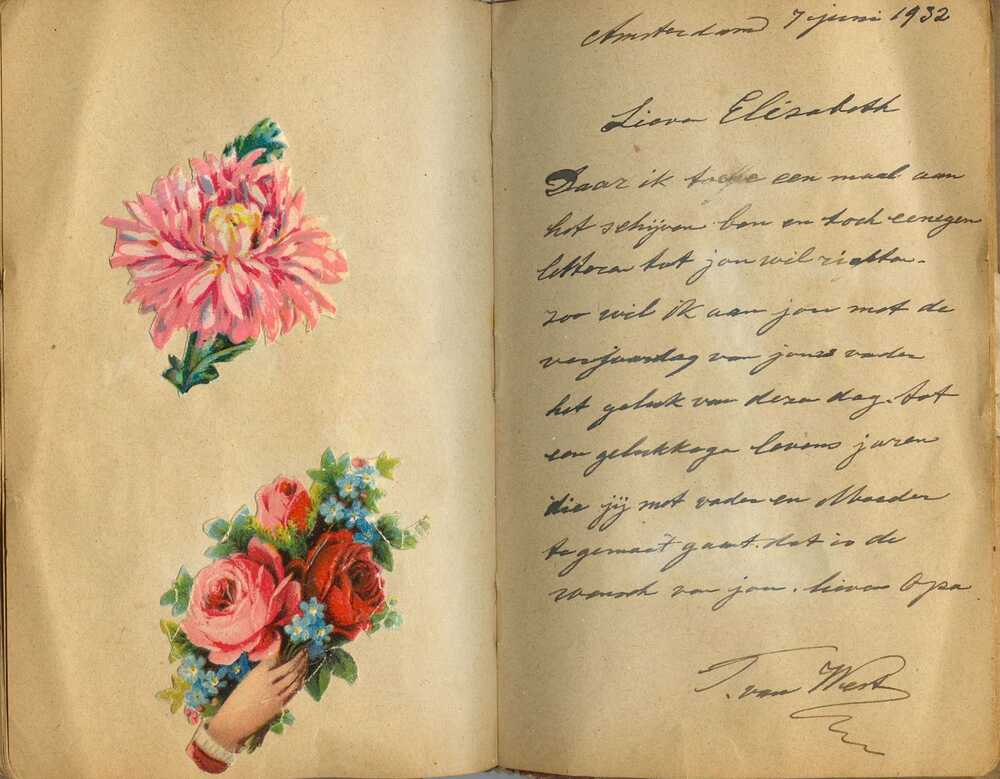 Amsterdam 7 juni 1932
Lieve Elisabeth
Daar ik een maal aan
het schijven ben en toch eenegen
lettere tot jou wil richte.
zoo wil ik aan jou met de
verjaardag van jouw vader
het geluk van deze dag. tot
een gelukkege levens jaren
die jij met vader en Moeder
te gemoet gaat. dat is de
wensch van jou. lieven Opa
T. van West